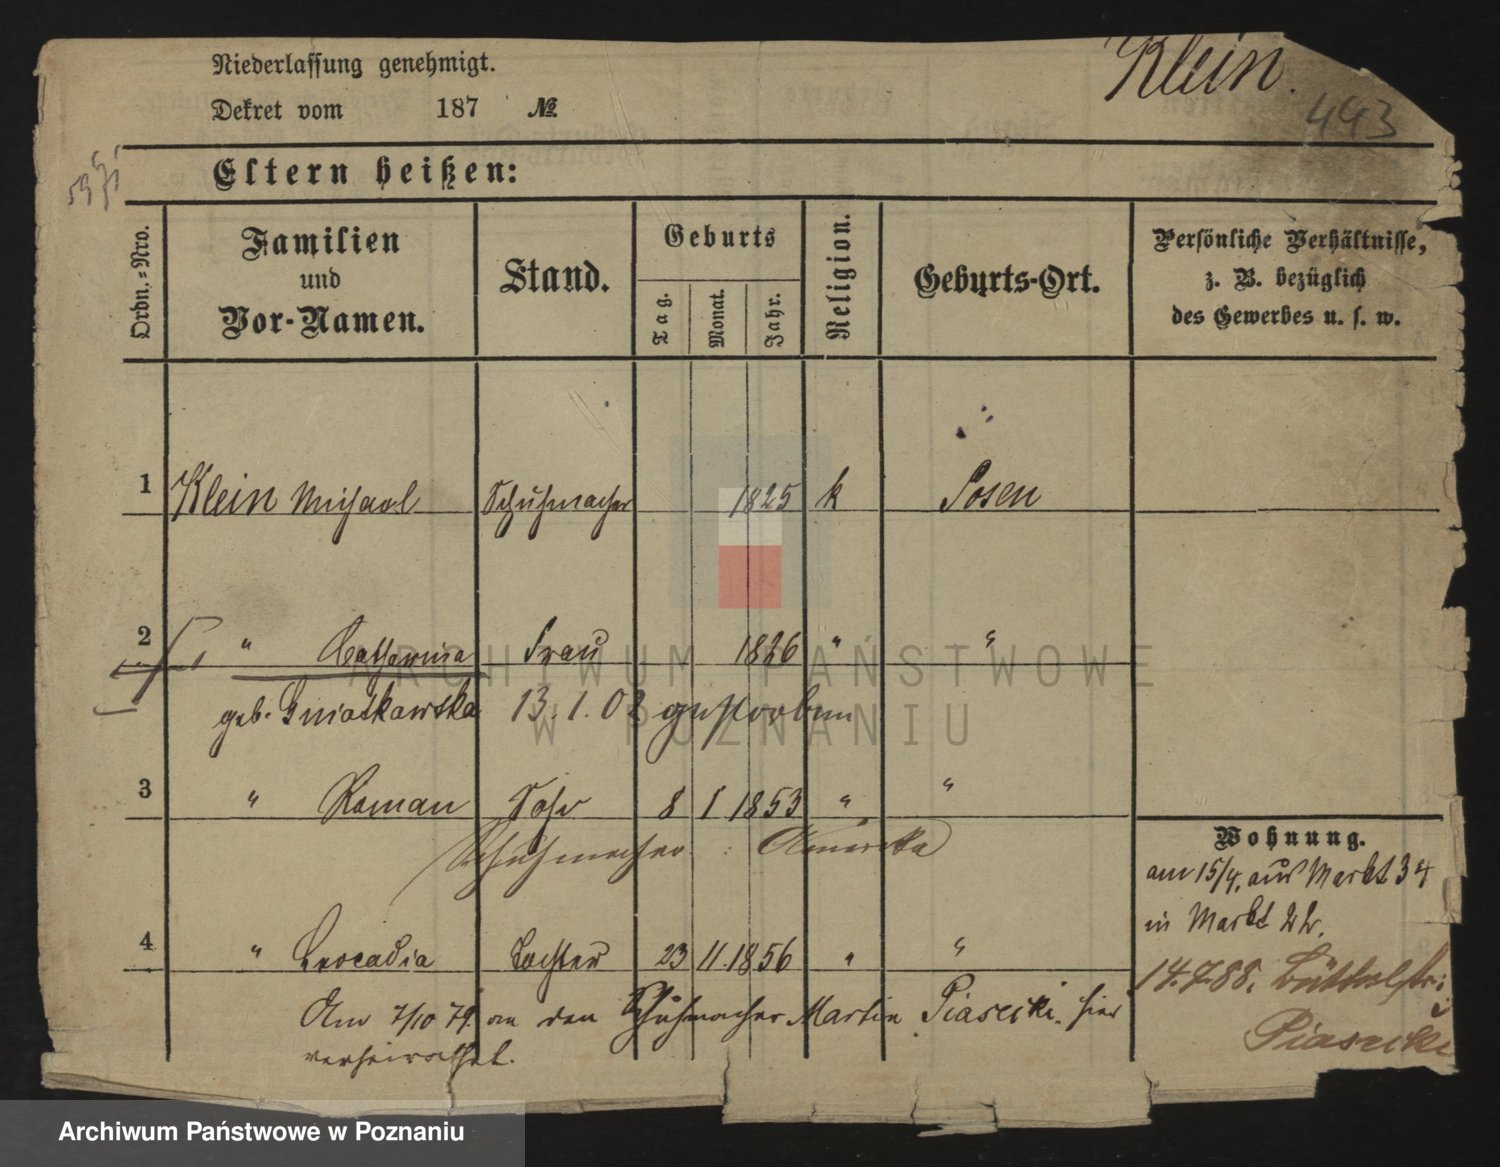 Niederlassung genehmigt.
Klein.
Dekret vom 187 №
443
Eltern heißen:
Ordn.=Nro.
Familien
und
Vor-Namen.
Stand.
Geburts
Tag.
Monat.
Jahr.
Religion.
Geburts-Ort.
Persönliche Verhältnisse,
z. B. bezüglich
des Gewerbes u. s. w.
1 Klein Michael Schuhmacher 1825 k Posen
2 " Catharina Frau 1826 " "
geb. Gniatkowska 13.1.02 gestorben
3 " Roman Sohn 8 1 1853 " "
Schuhmacher : Amerika
Wohnung.
am 15/4. aus Markt 34
in Markt 22.
4 " Leocadia Tochter 23 11. 1856 " "
14.7.88. Büttelstr:
Am 7/10 79. an den Schuhmacher Martin Piasecki. hier
verheirathet.
Piasecki
ARCHIWUM PAŃSTWOWE
W POZNANIU
Archiwum Państwowe w Poznaniu